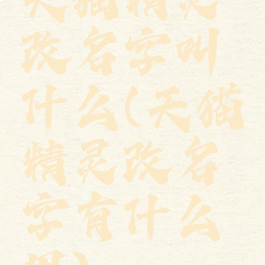 天猫精灵
改名字叫
什么(天猫
精灵改名
字有什么